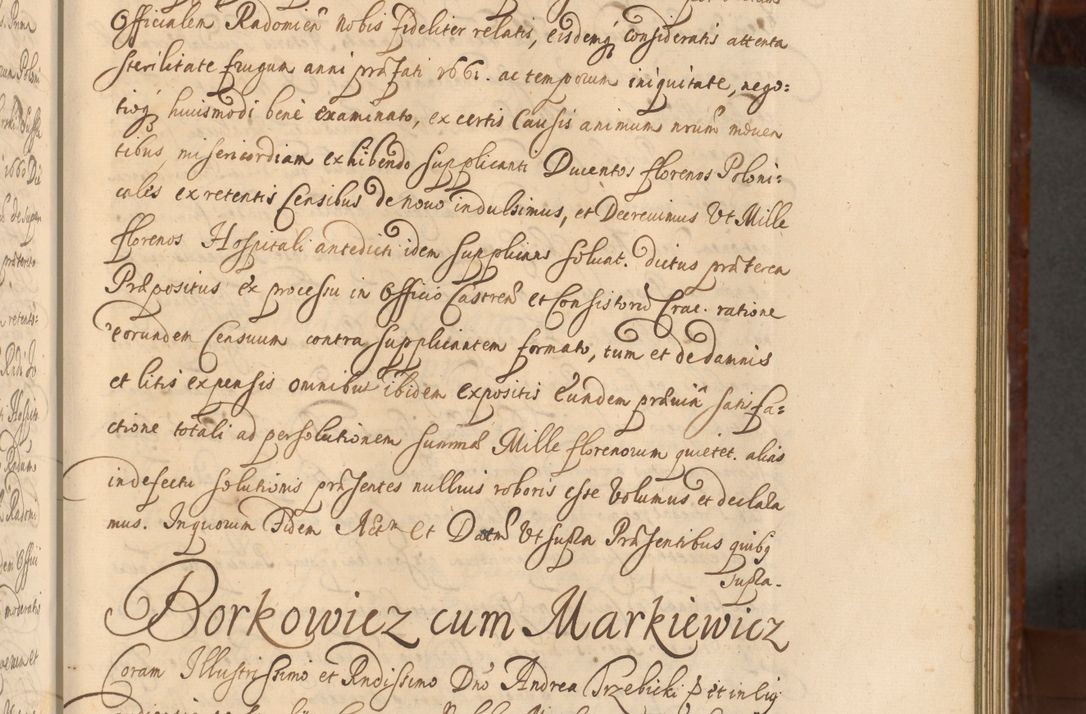 Officialem Radomien̄ nobis fideliter relatis, eisdemq́ consideratis attenta
sterilitate frugum anni præfati 1661. ac temporum iniquitate, nego:
tioq́ huiusmodi bene examinato, ex certis Causis animum nrum̄ moven
tibus, misericordiam exhibendo Supplicanti Ducentos florenos Poloni:
cales ex retentis Censibus de novo indulsimus, et Decrevimus Vt Mille
florenos Hospitali antedicti idem Supplicans solvat. dictus præterea
Præpositus ex processu in Officio Castren̄ et Consistorÿ Crac. ratione
eorundem Censuum contra Supplicantem formato, tum et de damnis
et litis expensis omnibus ibidem expositis Eundem prævia satisfa:
ctione totali ad persolutionem summæ Mille florenorum quietet. alias
in defectu solutionis præsentes nullius roboris esse Volumus et declara
mus. In quorum Fidem Actm̄ et Datm̄ Vt supra Præsentibus quibq
supra.
Borkowicz cum Markiewicz
Coram Illustrissimo et Rndissimo Dno Andrea Trzebicki